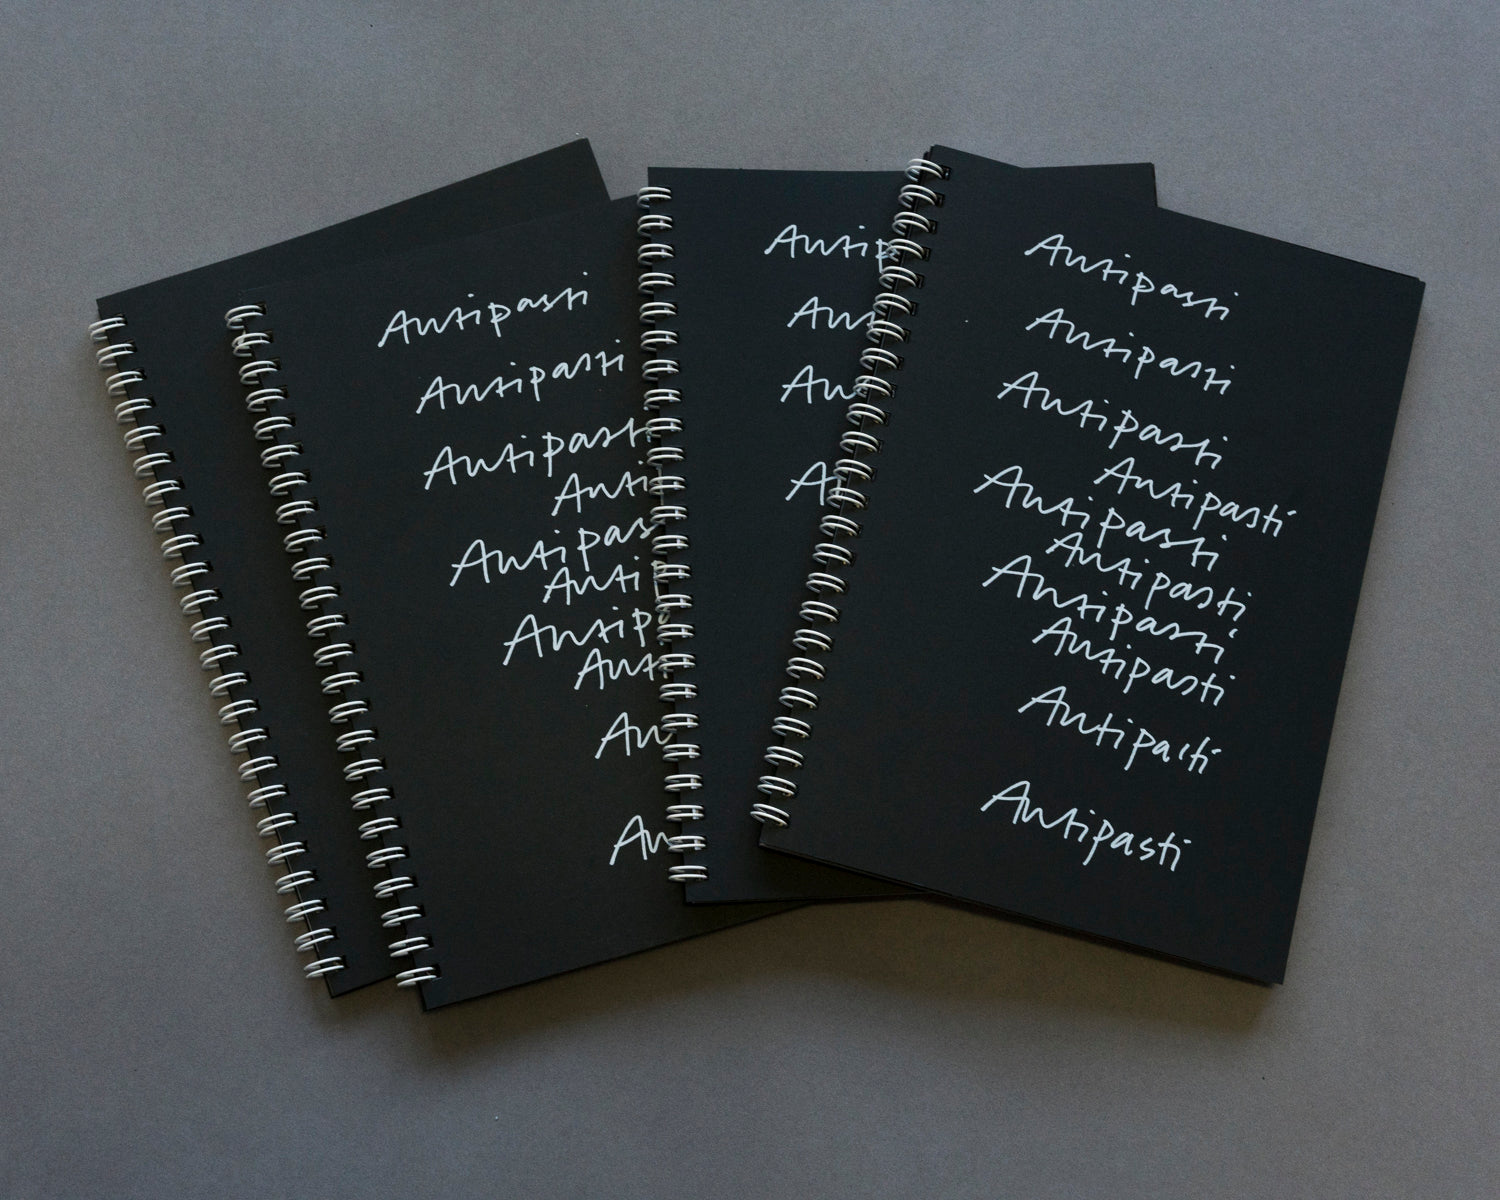 Antipasti
Antipasti
Antipasti
Anti
Antipas
Anti
Antip
Anti
An
An
Antip
Ant
An
A
Antipasti
Antipasti
Antipasti
Antipasti
Antipasti
Antipasti
Antipasti
Antipasti
Antipasti
Antipasti